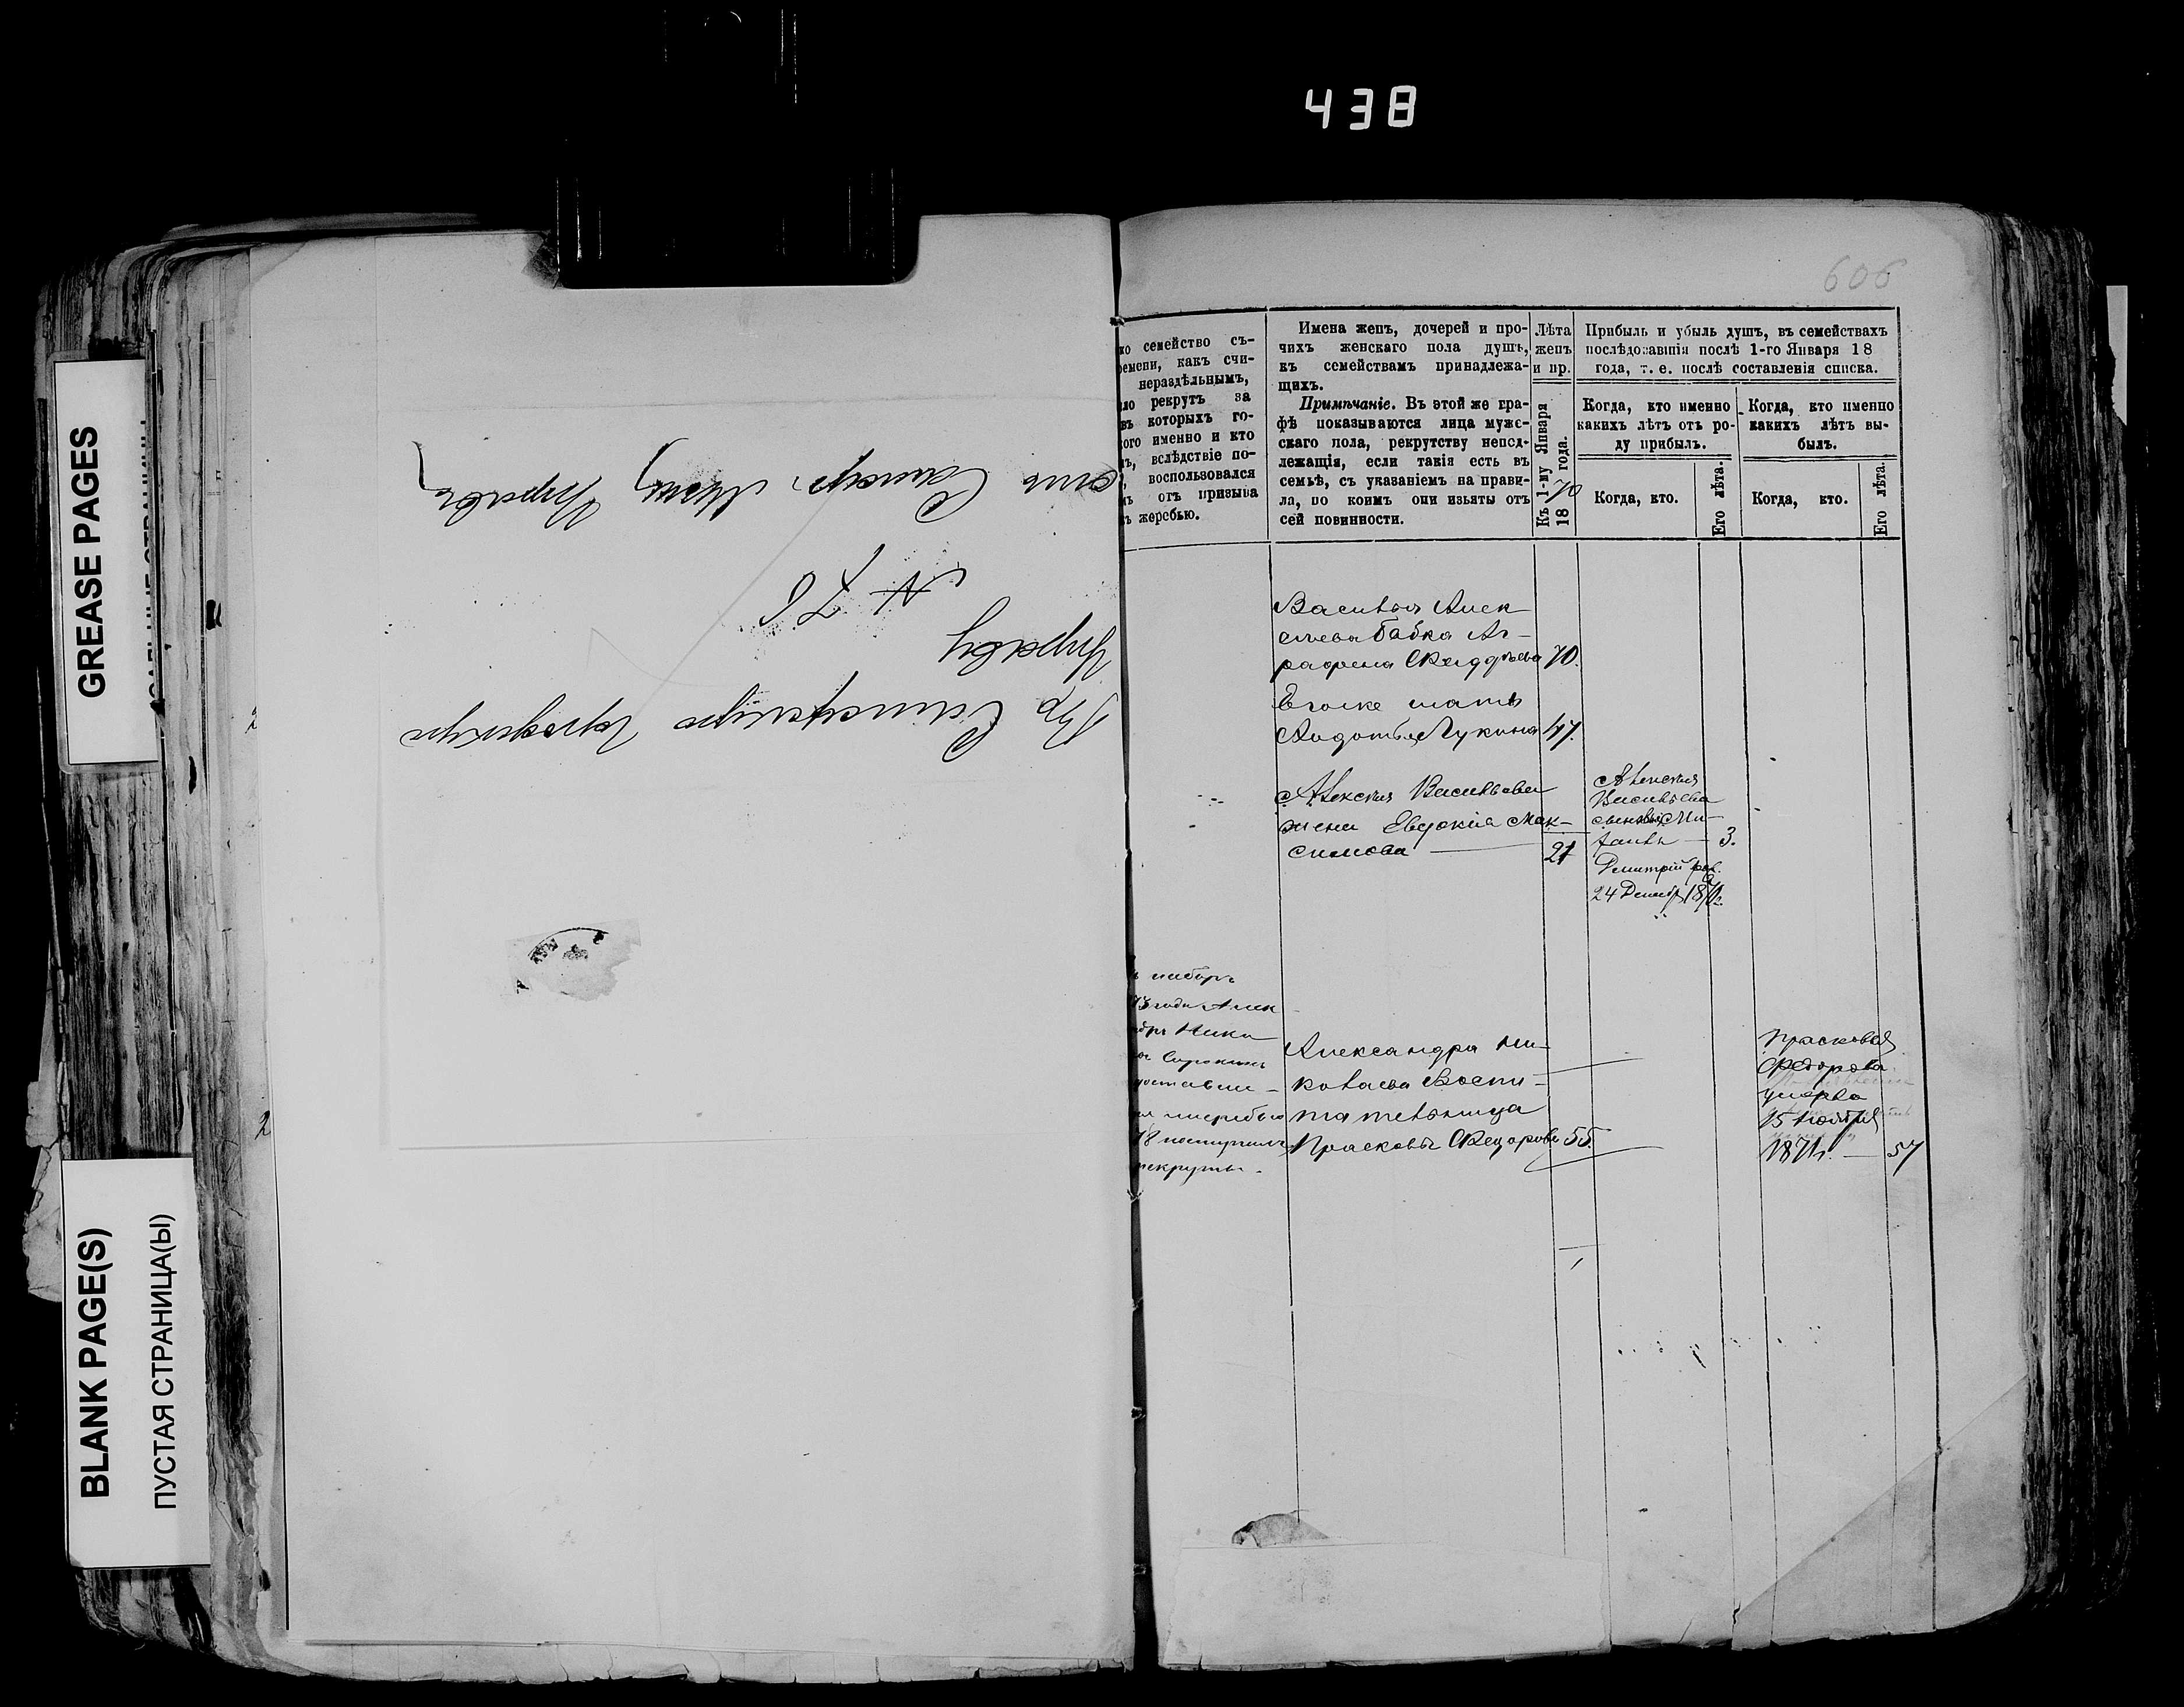 438
606
GREASE PAGES
BLANK PAGE(S)
ПУСТАЯ СТРАНИЦА(Ы)
Въ Самарскую Городскую
Управу
№ 76
семейство съ-
времени, какъ счи-
нераздѣльнымъ,
рекрутъ за
въ которыхъ го-
именно и кто
вслѣдствіе по-
воспользовался
отъ призыва
жеребью.
Имена женъ, дочерей и про-
чихъ женскаго пола душъ,
къ семействамъ принадлежа-
щихъ.
Примѣчаніе. Въ этой же гра-
фѣ показываются лица муже-
скаго пола, рекрутству непод-
лежащія, если такія есть въ
семьѣ, съ указаніемъ на прави-
ла, по коимъ они изъяты отъ
сей повинности.
Лѣта
женъ
и пр.
Къ 1-му Января
1870 года.
Прибыль и убыль душъ, въ семействахъ
послѣдовавшія послѣ 1-го Января 18
года, т. е. послѣ составленія списка.
Когда, кто именно
какихъ лѣтъ отъ ро-
ду прибылъ.
Когда, кто именно
какихъ лѣтъ вы-
былъ.
Когда, кто.
Его лѣта.
Когда, кто.
Его лѣта.
Василья Алек
сѣева бабка Аг-
рафена 70.
Его же мать
Авдотья Лукина 47.
Алексѣя Васильева
жена Евдокія Мак-
симова 21
Алексѣя
Васильева
сыновья Ми-
хаилъ — 3.
Дмитрій род.
24 Декабр 1872.
наборъ
73 года Алек
Нико
Сорокинъ
жеребью
78 поступилъ
рекруты.
Александра Ни-
колаева Воспи-
тательница
Прасковья Федорова 55.
Прасковья
Федорова
умерла
15 Ноября
1871г. — 57